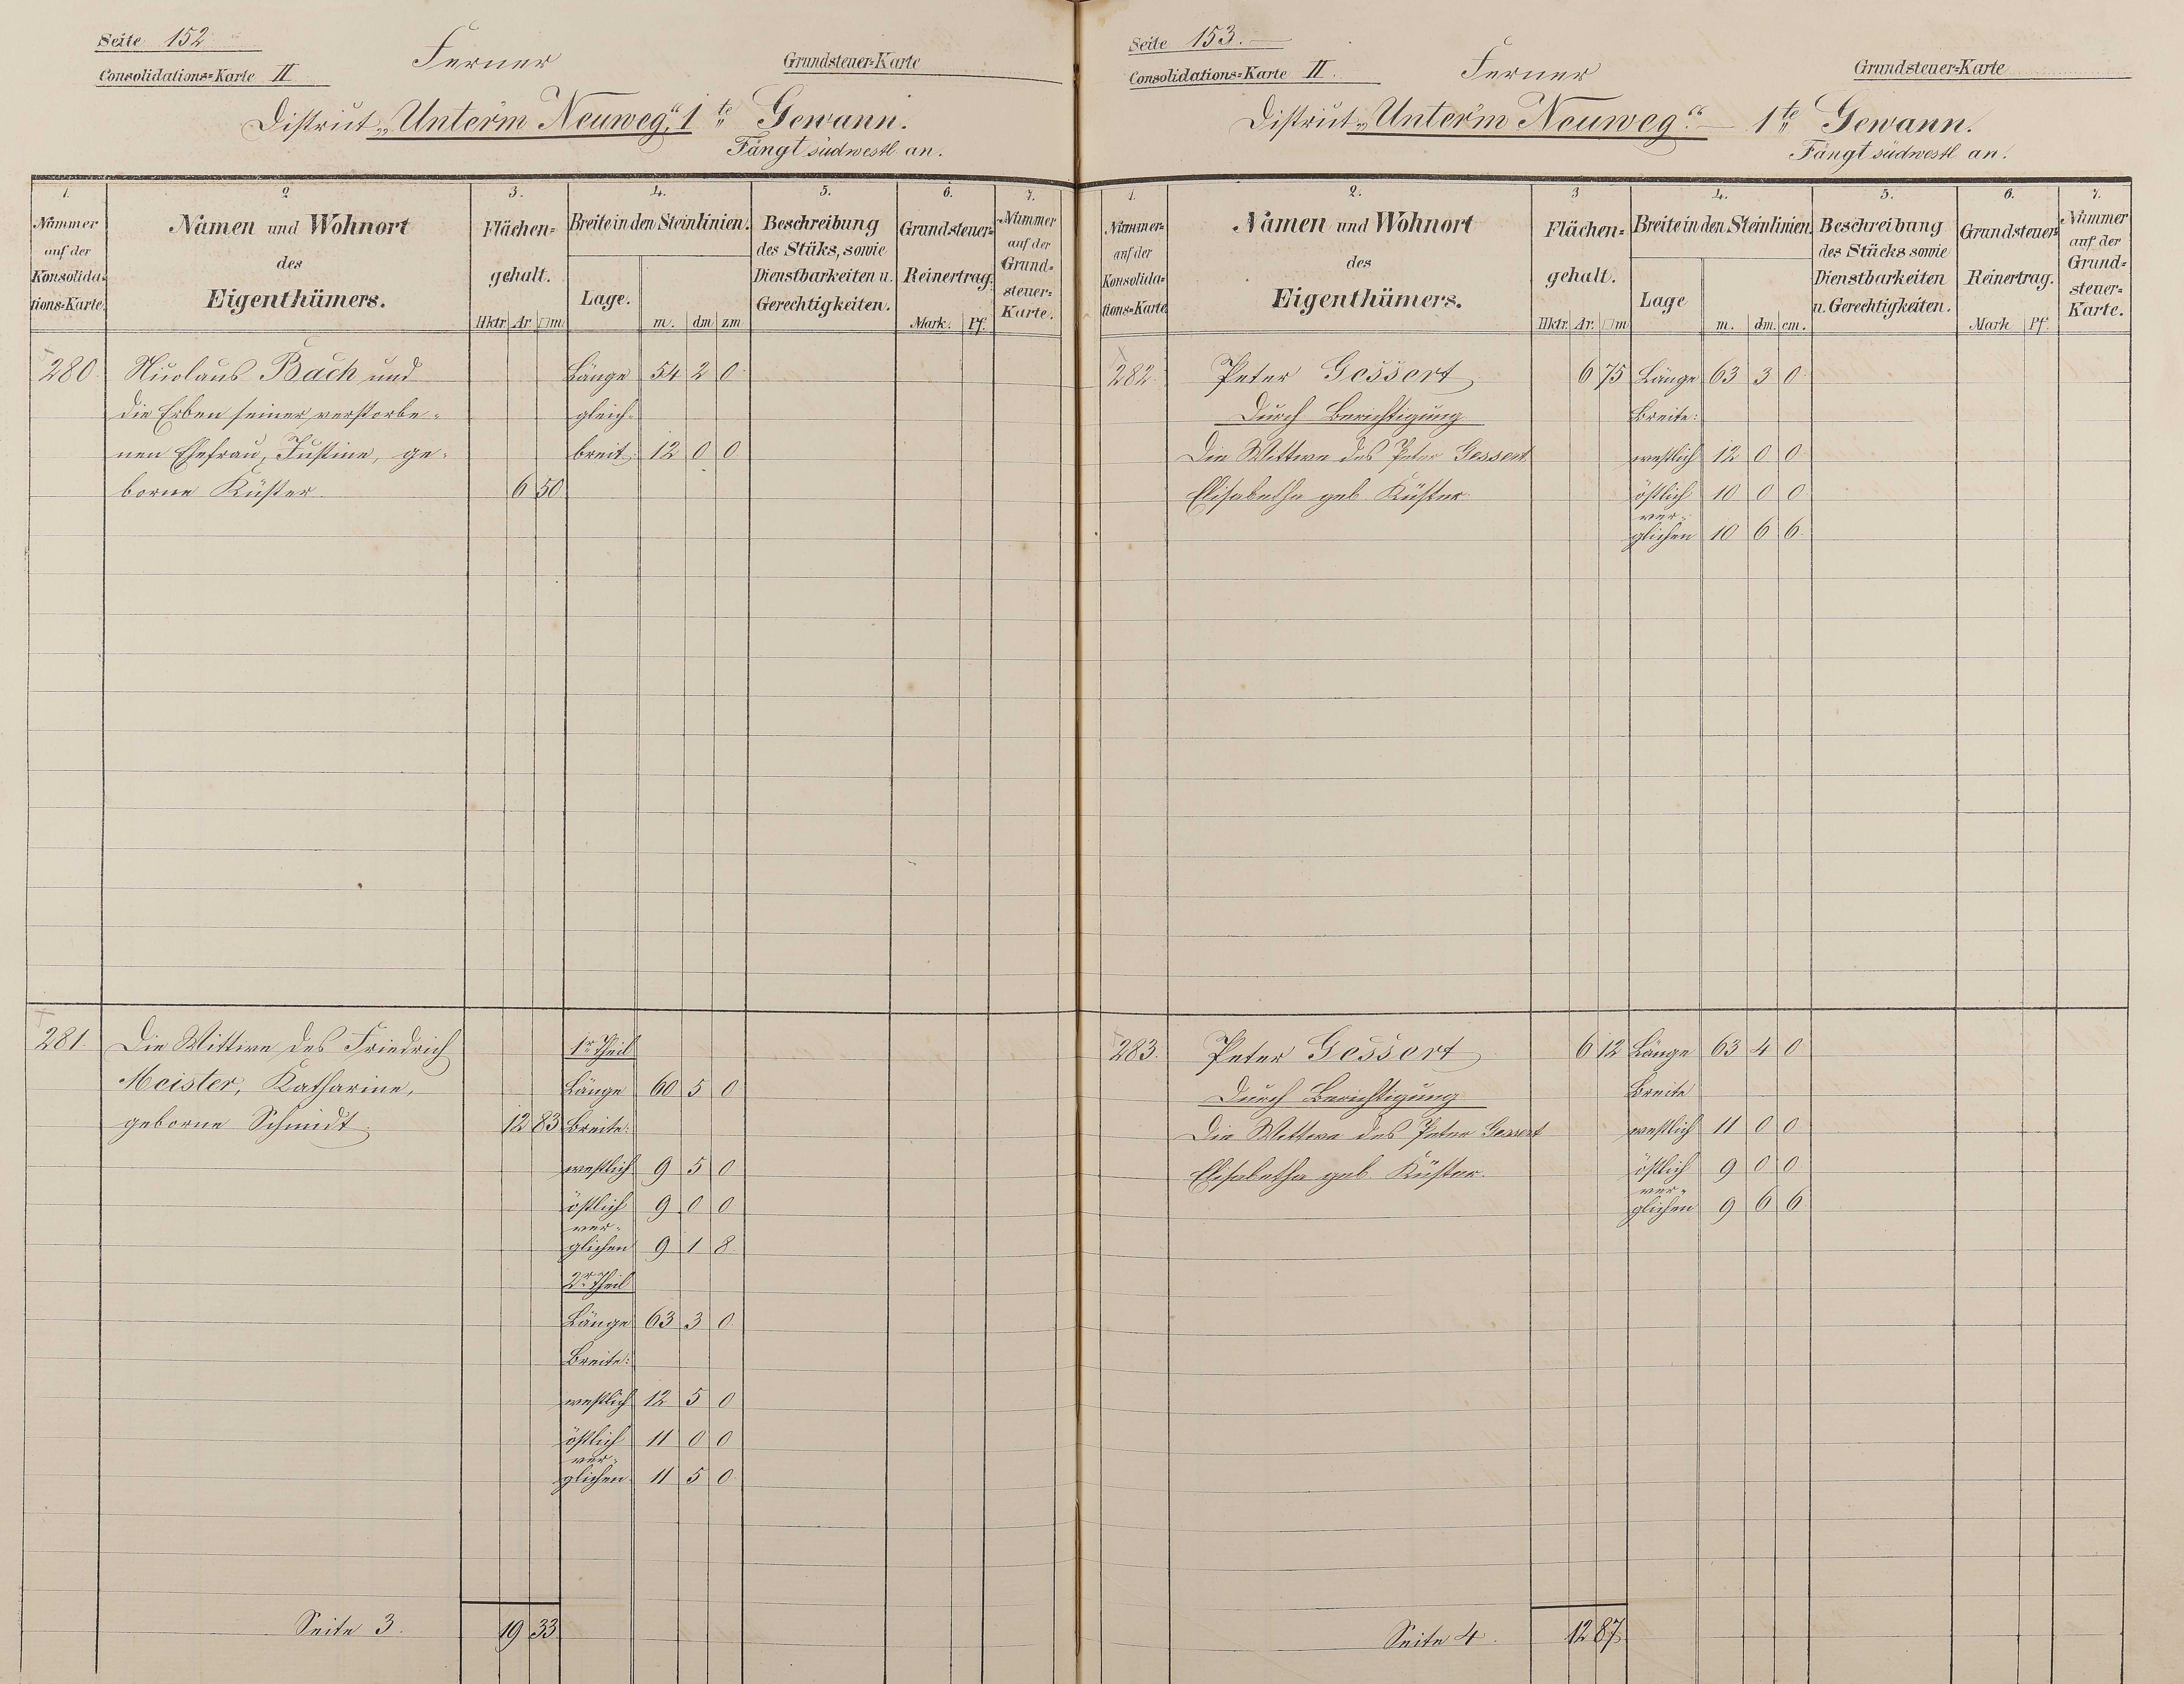 Seite 152
Consolidations=Karte II
Ferner
Grundsteuer=Karte
District „Unter'm Neuweg“, 1te Gewann.
Fängt südwestl. an.
1.
Nummer
auf der
Konsolida=
tions=Karte.
2
Namen und Wohnort
des
Eigenthümers.
3.
Flächen=
gehalt.
Hktr. Ar. □m.
4.
Breite in den Steinlinien.
Lage.
m. dm zm
5.
Beschreibung
des Stüks, sowie
Dienstbarkeiten u.
Gerechtigkeiten.
6.
Grundsteuer=
Reinertrag.
Mark. Pf.
7.
Nummer
auf der
Grund=
steuer=
Karte.
280. Nicolaus Bach und Länge 54 2 0
die Erben seiner verstorbe= gleich=
nen Ehefrau, Justine, ge= breit 12 0 0
borne Küster. 6 50
281. Die Wittwe des Friedrich 1r Theil
Meister, Katharine, Länge 60 5 0
geborne Schmidt. 12 83 Breite:
westlich 9 5 0
östlich 9 0 0
ver=
glichen 9 1 8
2r Theil
Länge 63 3 0
Breite:
westlich 12 5 0
östlich 11 0 0
ver=
glichen 11 5 0
Seite 3. 19 33
Seite 153.
Consolidations=Karte II.
Ferner
Grundsteuer=Karte
District „Unter'm Neuweg“. — 1te Gewann.
Fängt südwestl. an.
1.
Nummer
auf der
Konsolida=
tions=Karte
2.
Namen und Wohnort
des
Eigenthümers.
3
Flächen=
gehalt.
Hktr. Ar. □m
4.
Breite in den Steinlinien.
Lage
m. dm. cm.
5.
Beschreibung
des Stücks sowie
Dienstbarkeiten
u. Gerechtigkeiten.
6.
Grundsteuer=
Reinertrag.
Mark Pf.
7.
Nummer
auf der
Grund=
steuer=
Karte.
282. Peter Gessert 6 75 Länge 63 3 0
Durch Berichtigung Breite:
Die Wittwe des Peter Gessert westlich 12 0 0
Elisabetha geb. Küster. östlich 10 0 0
ver=
glichen 10 6 6
283. Peter Gessert 6 12 Länge 63 4 0
Durch Berichtigung Breite
Die Wittwe des Peter Gessert westlich 11 0 0
Elisabetha geb. Küster. östlich 9 0 0
ver=
glichen 9 6 6
Seite 4. 12 87